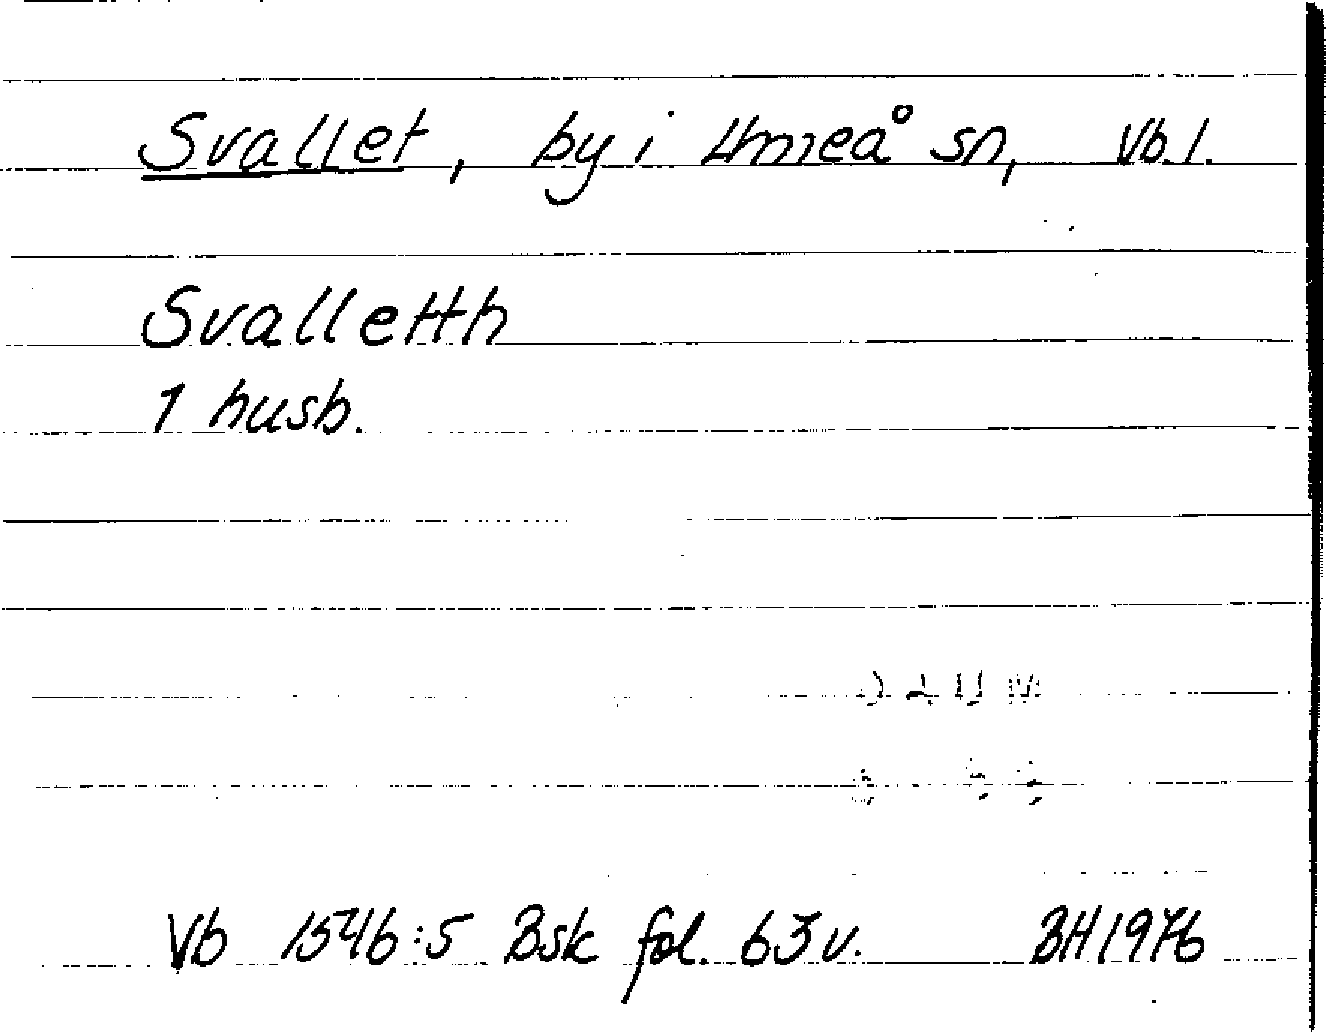 Svallet, by i Umeå sn, Vb. l.
Svalletth
1 husb.
Vb 1546:5 Bsk fol. 63 v. BH 1976